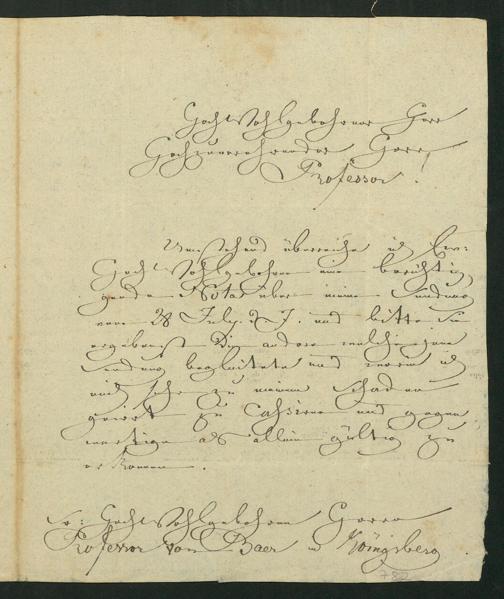 Hochwohlgebohrner Herr
Hochzuverehrender Herr
Professor!
Umstehend überreiche ich Ew:
Hochwohlgebohren eine berichti
gende Nota über meine Sendung
vom 28 July 27. und bitte Sie
ergebenst die andere welche jene
Sendung begleitete und worin ich
mich sehr zu meinem Schaden
geirrt zu cassiren und gegen
wertige als allein gültig zu
erkennen.
Sr: Hochwohlgebohren Herrn
Professor von Baer in Königsberg